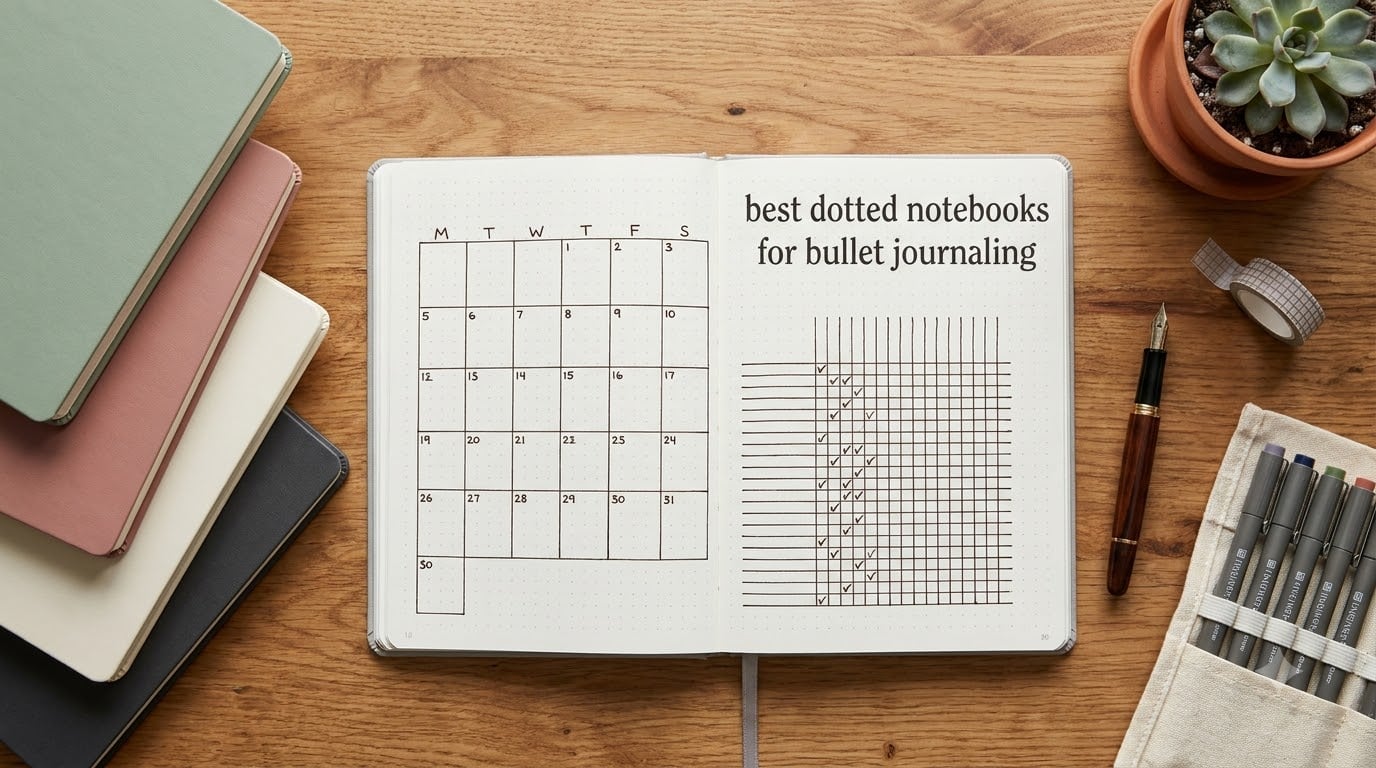 M T W T F S
1 2 3
5 6 7 8 9 10
12 13 14 15 16 17
19 20 21 22 25 24
26 27 28 29 30 31
30
best dotted notebooks
for bullet journaling